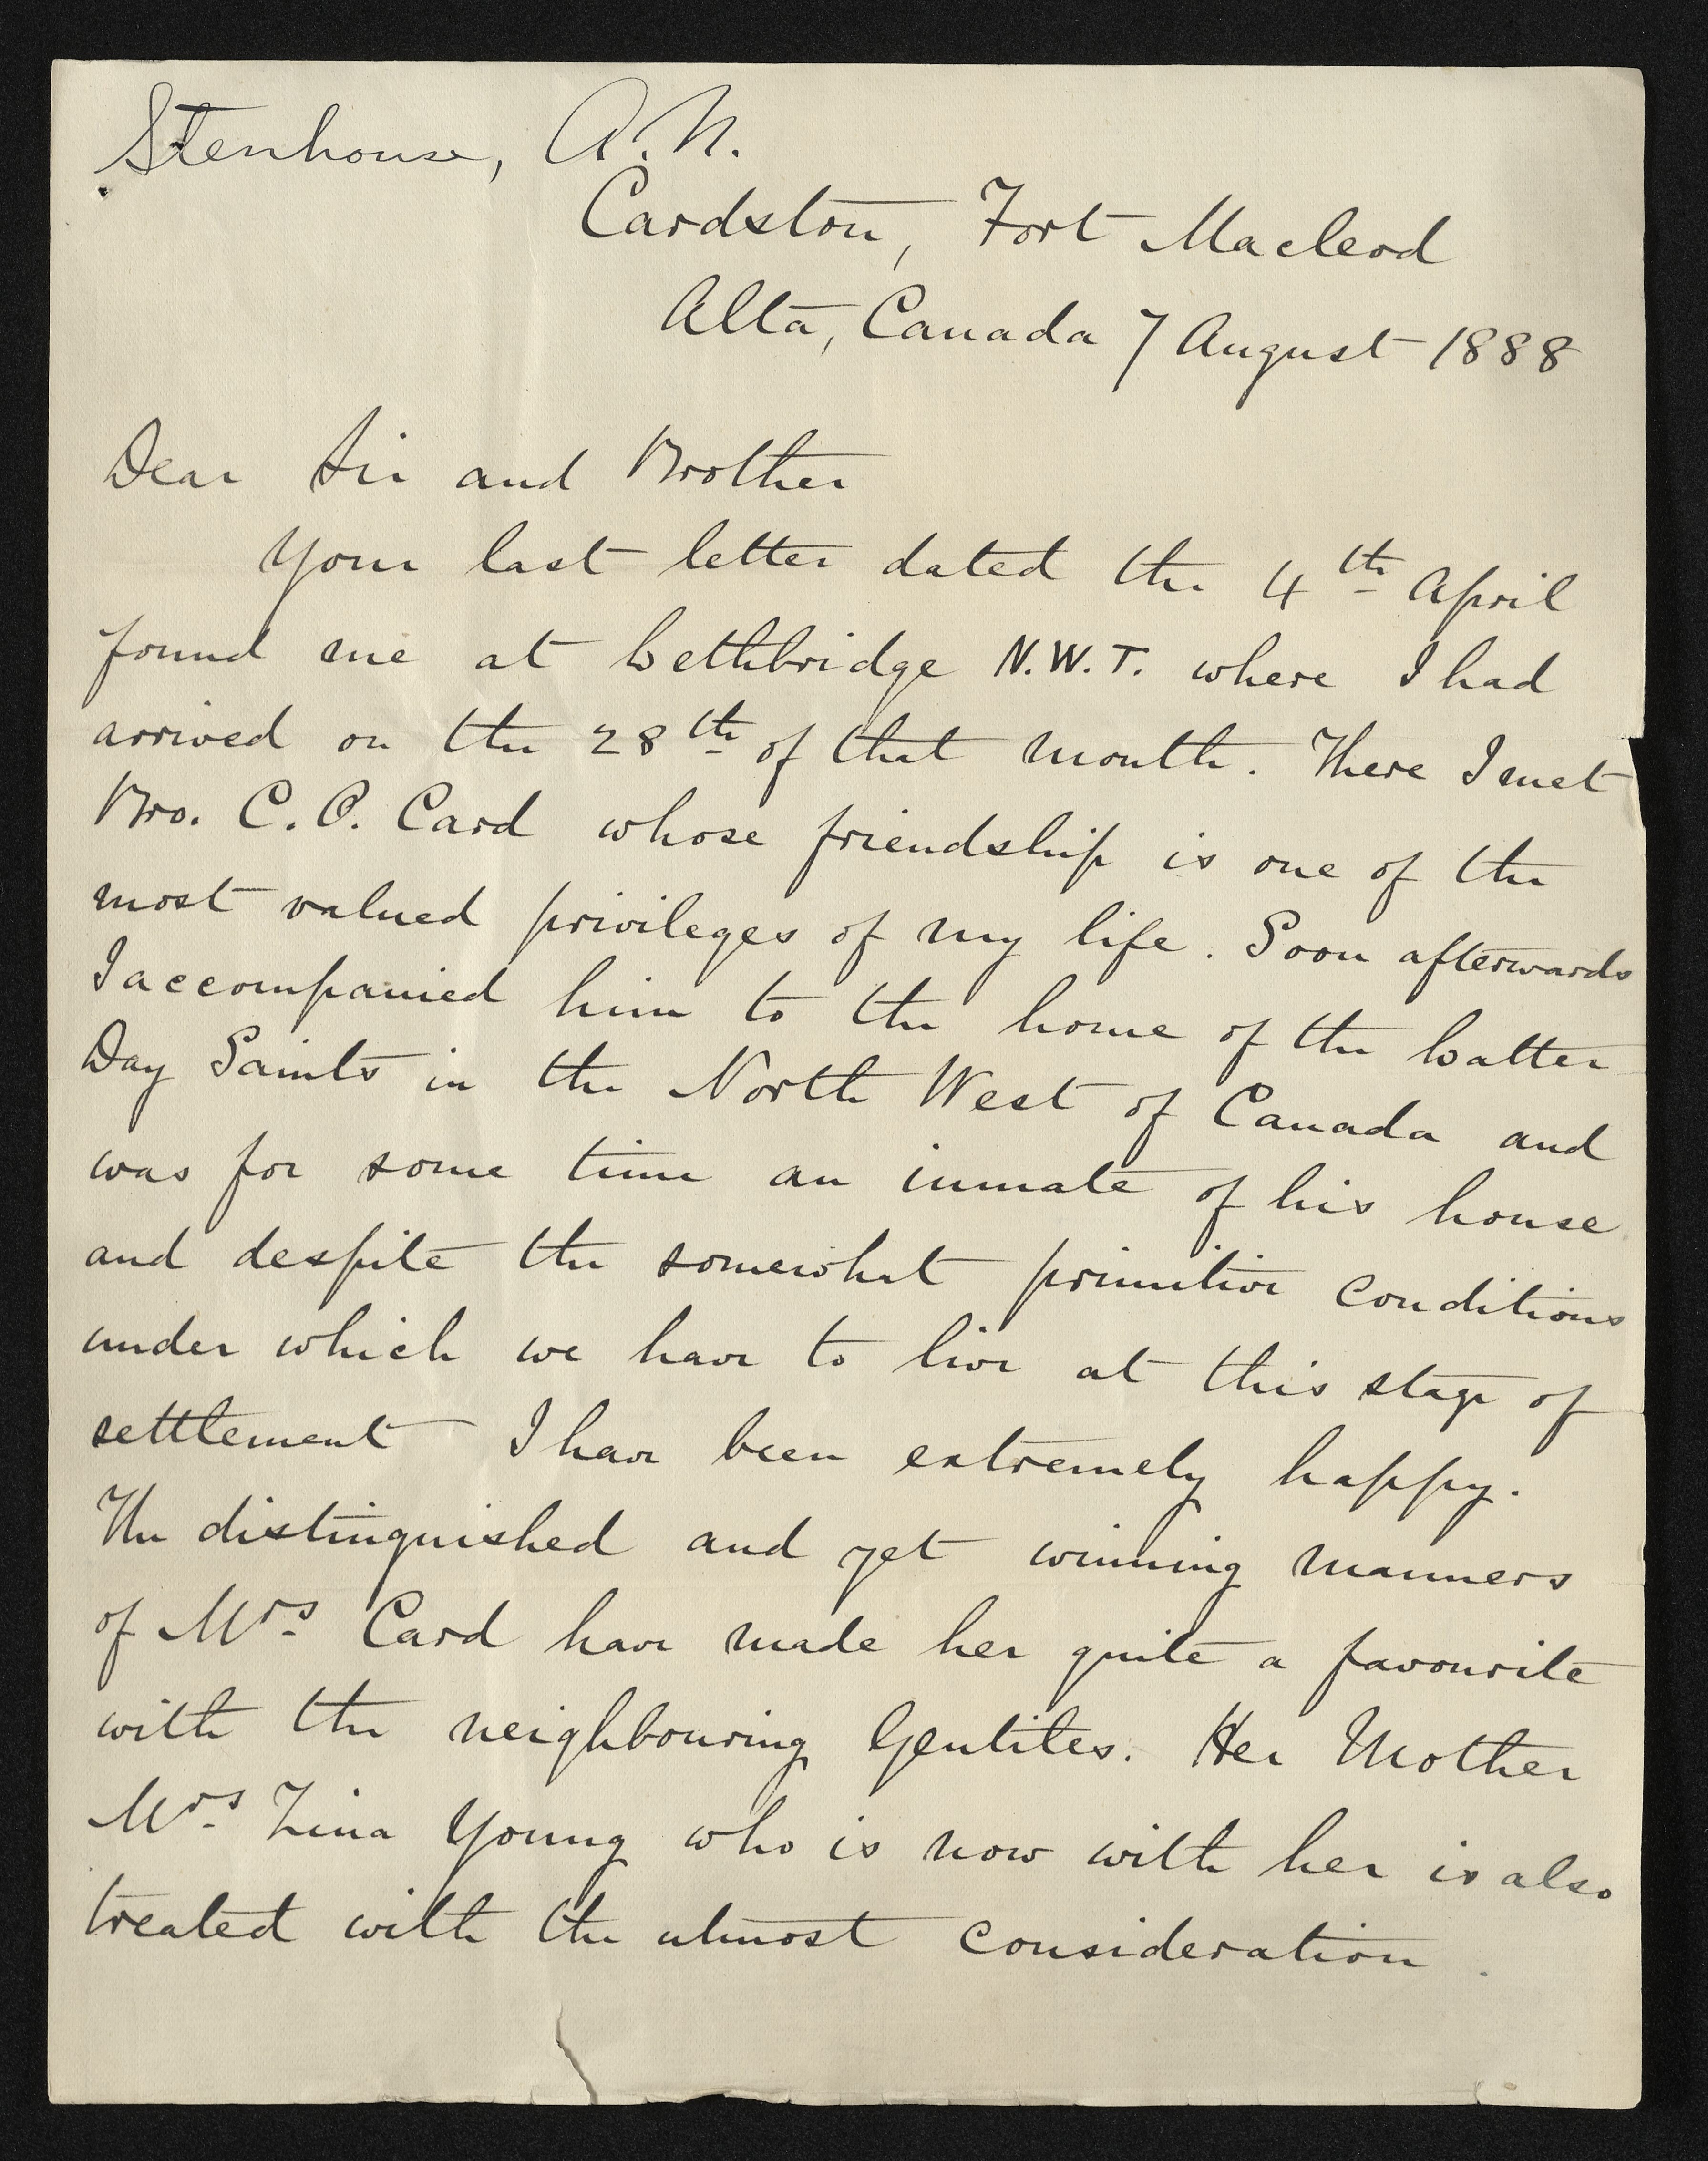 Stenhouse, A. N.
Cardston, Fort Macleod
Alta, Canada 7 August 1888
Dear Sir and Brother
Your last letter dated the 4th April
found me at Lethbridge N.W.T. where I had
arrived on the 28th of that month. There I met
Bro. C. O. Card whose friendship is one of the
most valued privileges of my life. Soon afterwards
I accompanied him to the home of the Latter
Day Saints in the North West of Canada and
was for some time an inmate of his house
and despite the somewhat primitive conditions
under which we have to live at this stage of
settlement I have been extremely happy.
The distinguished and yet winning manners
of Mrs. Card have made her quite a favourite
with the neighbouring Gentiles. Her Mother
Mrs. Zina Young who is now with her is also
treated with the utmost consideration.